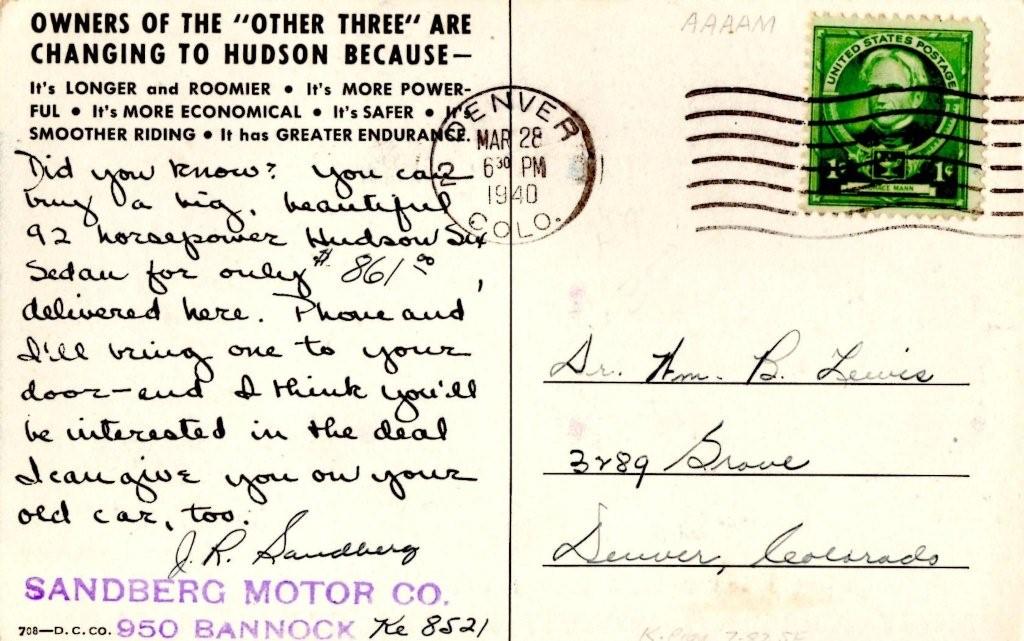 OWNERS OF THE "OTHER THREE" ARE
CHANGING TO HUDSON BECAUSE—
It's LONGER and ROOMIER • It's MORE POWER-
FUL • It's MORE ECONOMICAL • It's SAFER • It's
SMOOTHER RIDING • It has GREATER ENDURANCE.
Did you know? You can
buy a big, beautiful
92 horsepower Hudson Six
Sedan for only $861.00,
delivered here. Phone and
I'll bring one to your
door—and I think you'll
be interested in the deal
I can give you on your
old car, too.
J. R. Sandberg
SANDBERG MOTOR CO.
708—D.C.CO. 950 BANNOCK Ke 8521
AAAAM
DENVER
MAR 28
6 30 PM
1940
COLO.
UNITED STATES POSTAGE
1¢ 1¢
HORACE MANN
Dr. Wm. B. Lewis
3289 Grove
Denver, Colorado